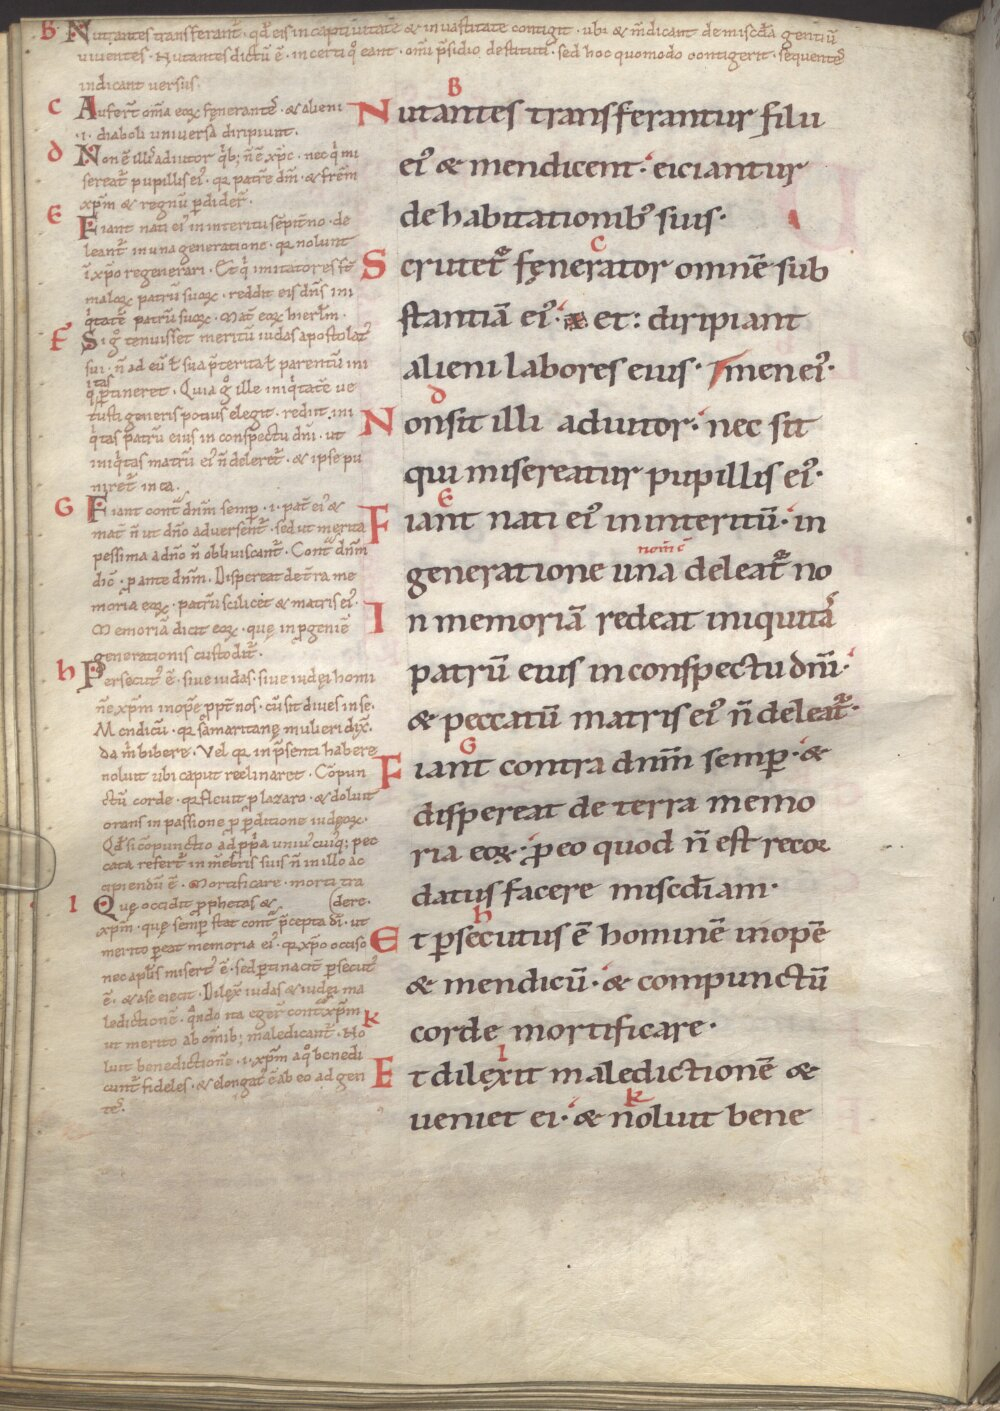 B Nutantes transferant᷑ · qđ eis in captiuitatē & in uastitate contigit · ubi & m̄dicant de misc̄dīa gentiū
uiuentes · Nutantes dictū ē · incerti q̊ eant · om̄i p̄sidio destituti · sed hoc quomodo contigerit · sequentes
indicant uersus ·
C Aufert om̄a eoꝝ fęnerantes · & alieni
· i · diaboli uniuersa diripiunt ·
d Non ē illis adiutor q'b; n̄ ē xp̄c · nec q' mi
sereat᷑ pupillis ei᾽ · qꝛ patrē dm̄ · & fr̄em
xp̄m & regnū pdider̄ ·
E Fiant nati ei᾽ in interitu sēpit̄no · de
leant᷑ in una generatione · qꝛ nolunt
ī xp̄o regenerari · Et q' imitatores ſt̄
maloꝝ patrū suoꝝ · reddit eis dn̄s ini
q'tatē patrū suoꝝ · Mat̄ eoꝝ hierl̄m ·
F Si g̊ tenuisset meritū iudas apostolat᾽
sui · n̄ ad eū ł sua p̄terita ł parentū ini
q'tas ptineret · Quia g̊ ille iniq'tatē ue
tusti generis potius elegit · rediit ini
q'tas patrū eius in conspectu dn̄i · ut
iniq'tas matrū ei᾽ n̄ deleret᷑ · & ipse pu
niret᷑ in ea ·
G Fiant cont̄ dnm̄ semp · i · pat̄ ei᾽ &
mat̄ n̄ ut dn̄o aduersent᷑ · sed ut merita
pessima a dn̄o n̄ obliuiscant᷑ · Cont̄ dnm̄
dic̄ · p ante dnm̄ · Dispereat de t̄ra me
moria eoꝝ · patrū scilicet & matris ei᾽ ·
Memoriā dicit eoꝝ · quę in pgeniē
generationis custodit᷑ ·
h Persecut᾽ ē · siue iudas · siue iudęi homi
nē xp̄m inopē ppt̄ nos · cū sit diues in se ·
Mendicū · qꝛ samaritanę mulieri dix̄ ·
da m' bibere · Vel qꝛ in p̄senti habere
noluit ubi caput reclinaret · Cōpun
ctū corde · qꝛ fleuit p lazaro · & doluit
orans in passione p pditione iudęoꝝ ·
Qđ si cōpunctio ad pp̄a uniuscuiq; pec
cata refert᷑ in mēbris suis n̄ in illo ac
cipiendū ē · Mortificare · morti tra
(dere ·
I Quę occidit pphetas &
xp̄m · quę semp stat cont̄ p̄cepta dī · ut
merito peat memoria ei᾽ · qꝛ xp̄o occiso
nec apl̄is misert᾽ ē · sed ptinacit̄ psecut᾽
ē · & a se eiecit · Dilex̄ iudas & iudęi ma
ledictionē · q̄ndo ita eger̄ cont̄ xp̄m
K ut merito ab om̄ib; maledicant᷑ · No
luit benedictionē · i · xp̄m a q̊ benedi
cunt᷑ fideles · & elongat᷑ ē ab eo ad gen
tes ·
B
Nutantes transferantur filii
ei᾽ & mendicent · eiciantur
de habitationib᾽ suis ·
C
Scrutet᷑ fęnerator omnē sub
stantiā ei᾽ · et : diripiant
alieni labores eius · F men ei᾽ ·
d
Non sit illi adiutor · nec sit
qui misereatur pupillis ei᾽ ·
E
Fiant nati ei᾽ in interitū · in
nom̄ ē
generatione una deleat᷑ no
In memoriā redeat iniquitas
patrū eius in conspectu dn̄i ·
& peccatū matris ei᾽ n̄ deleat᷑ ·
G
Fiant contra dnm̄ semp · &
dispereat de terra memo
ria eoꝝ · p eo quod n̄ est recor
datus facere misc̄diam ·
h
Et psecutus ē hominē inopē
& mendicū · & compunctū
corde mortificare ·
I
Et dilęxit maledictionē &
K
ueniet ei · & noluit bene